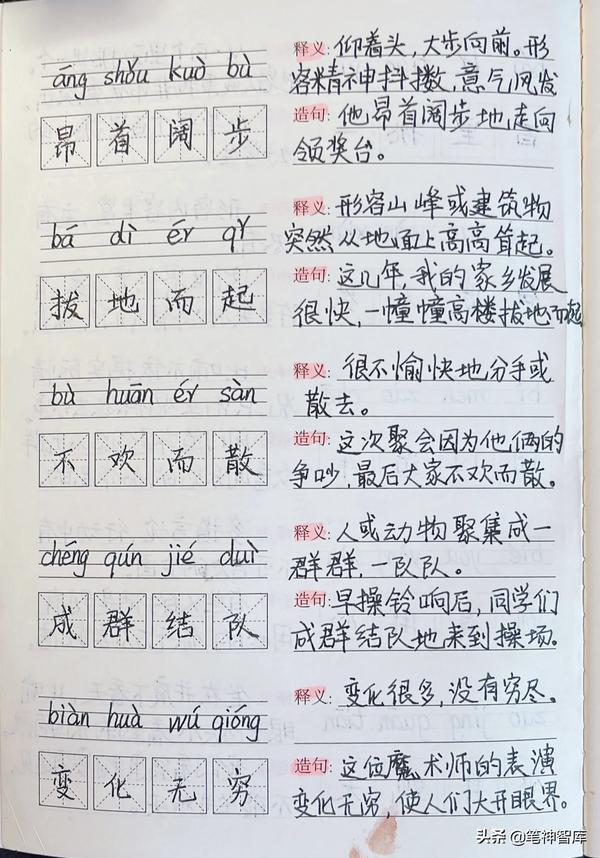 áng shǒu kuò bù
昂首阔步
释义: 仰着头,大步向前。形
容精神抖擞,意气风发
造句: 他昂首阔步地走向
领奖台。
bá dì ér qǐ
拔地而起
释义: 形容山峰或建筑物
突然从地面上高高耸起。
造句: 这几年,我的家乡发展
很快,一幢幢高楼拔地而起
bù huān ér sàn
不欢而散
释义: 很不愉快地分手或
散去。
造句: 这次聚会因为他俩的
争吵,最后大家不欢而散。
chéng qún jié duì
成群结队
释义: 人或动物聚集成一
群群,一队队。
造句: 早操铃响后,同学们
成群结队地来到操场。
biàn huà wú qióng
变化无穷
释义: 变化很多,没有穷尽。
造句: 这位魔术师的表演
变化无穷,使人们大开眼界。
头条 @笔神智库